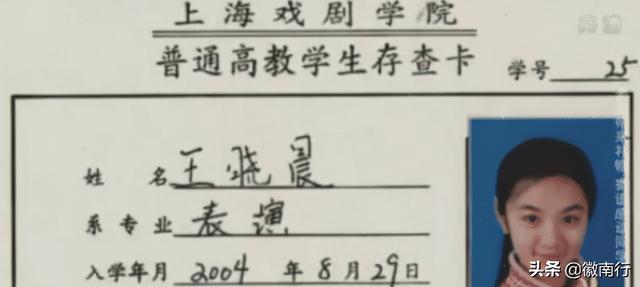 上海戏剧学院
普通高教学生存查卡
学号 25
姓名 王晓晨
系专业 表演
入学年月 2004 年 8 月 29 日
头条 @徽南行